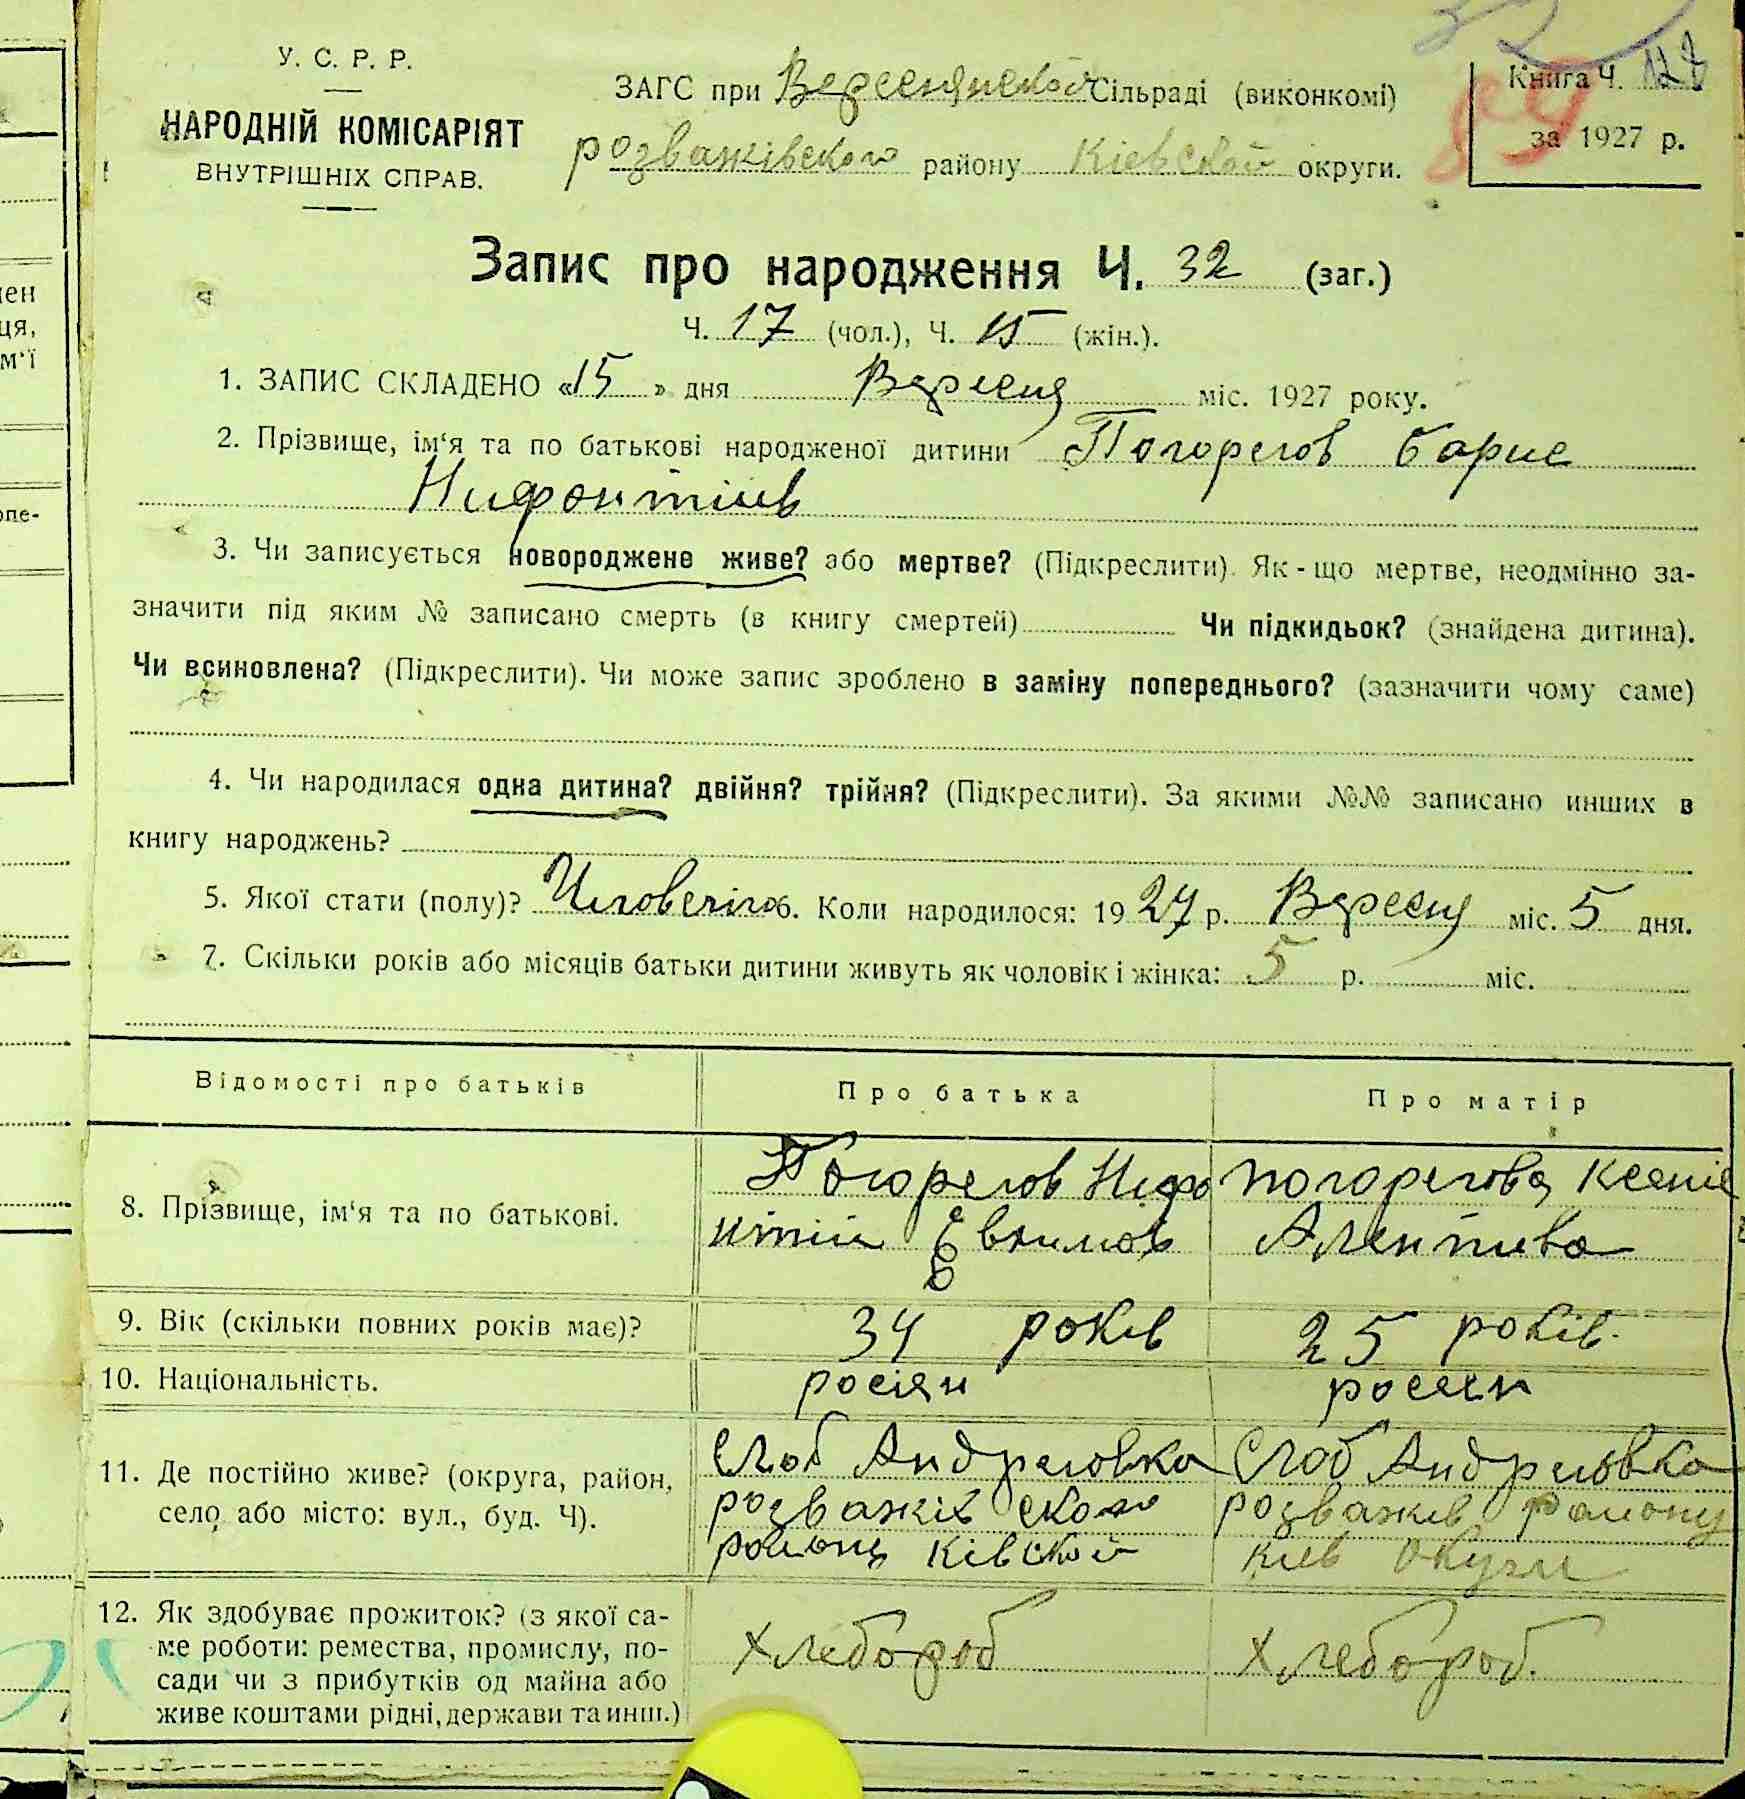 У. С. Р. Р.
НАРОДНІЙ КОМІСАРІЯТ
ВНУТРІШНІХ СПРАВ.
ЗАГС при Вересняской Сільраді (виконкомі)
розважівского району Кіевской округи.
Книга Ч. 127
за 1927 р.
89
Запис про народження Ч. 32 (заг.)
Ч. 17 (чол.), Ч. 15 (жін.).
1. ЗАПИС СКЛАДЕНО «15» дня Вересня міс. 1927 року.
2. Прізвище, ім‘я та по батькові народженої дитини Погорелов Борис
Нифонтіив
3. Чи записується новороджене живе? або мертве? (Підкреслити). Як-що мертве, неодмінно за-
значити під яким № записано смерть (в книгу смертей) Чи підкидьок? (знайдена дитина).
Чи всиновлена? (Підкреслити). Чи може запис зроблено в заміну попереднього? (зазначити чому саме)
4. Чи народилася одна дитина? двійня? трійня? (Підкреслити). За якими №№ записано инших в
книгу народжень?
5. Якої стати (полу)? Человечіго 6. Коли народилося: 1927 р. Вересня міс. 5 дня.
7. Скільки років або місяців батьки дитини живуть як чоловік і жінка: 5 р. міс.
Відомості про батьків Про батька Про матір
8. Прізвище, ім‘я та по батькові.
Погорелов Нифо
нтій Евкимов
Погорелова Ксение
9. Вік (скільки повних років має)? 34 років 25 років.
10. Національність. росіян росіян
11. Де постійно живе? (округа, район,
село або місто: вул., буд. Ч).
Слоб Андреговка
розважів ского
району Ківской
Слоб Андреговка
розважів району
киев окуги
12. Як здобуває прожиток? (з якої са-
ме роботи: ремества, промислу, по-
сади чи з прибутків од майна або
живе коштами рідні, держави та инш.)
хлебороб
хлебороб.